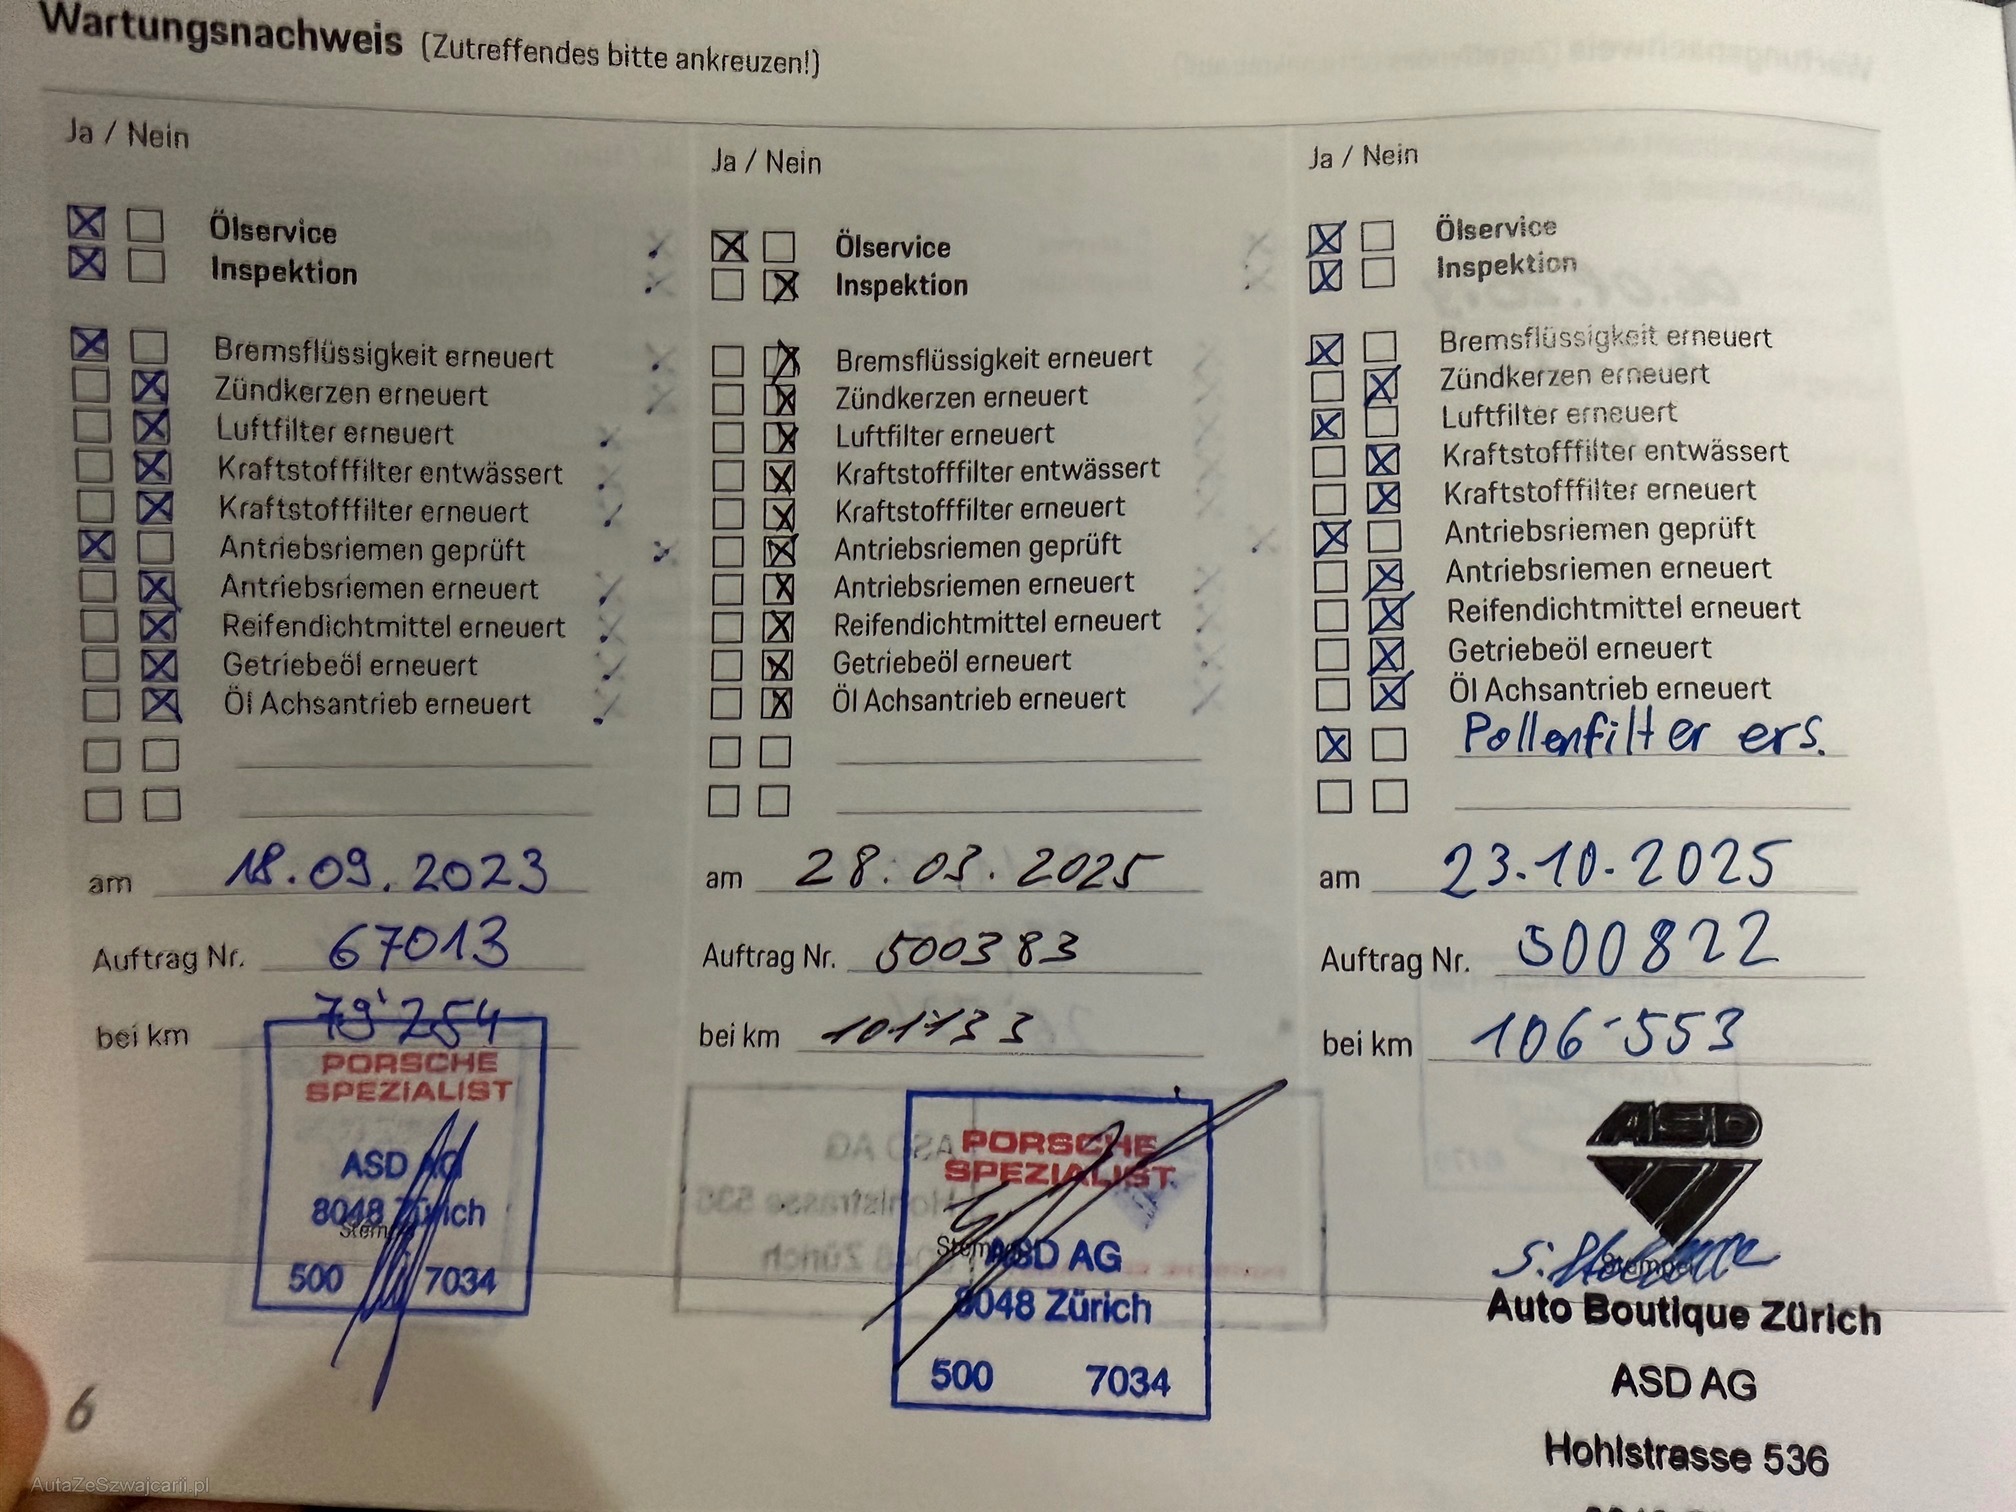 Wartungsnachweis (Zutreffendes bitte ankreuzen!)
Ja / Nein
Ölservice
Inspektion
Bremsflüssigkeit erneuert
Zündkerzen erneuert
Luftfilter erneuert
Kraftstofffilter entwässert
Kraftstofffilter erneuert
Antriebsriemen geprüft
Antriebsriemen erneuert
Reifendichtmittel erneuert
Getriebeöl erneuert
Öl Achsantrieb erneuert
am 18.09.2023
Auftrag Nr. 67013
bei km 79'254
PORSCHE
SPEZIALIST
ASD AG
8048 Zürich
Stempel
500 7034
6
Ja / Nein
Ölservice
Inspektion
Bremsflüssigkeit erneuert
Zündkerzen erneuert
Luftfilter erneuert
Kraftstofffilter entwässert
Kraftstofffilter erneuert
Antriebsriemen geprüft
Antriebsriemen erneuert
Reifendichtmittel erneuert
Getriebeöl erneuert
Öl Achsantrieb erneuert
am 28.03.2025
Auftrag Nr. 500383
bei km
PORSCHE
SPEZIALIST
Stempel
ASD AG
8048 Zürich
500 7034
Ja / Nein
Ölservice
Inspektion
Bremsflüssigkeit erneuert
Zündkerzen erneuert
Luftfilter erneuert
Kraftstofffilter entwässert
Kraftstofffilter erneuert
Antriebsriemen geprüft
Antriebsriemen erneuert
Reifendichtmittel erneuert
Getriebeöl erneuert
Öl Achsantrieb erneuert
Pollenfilter ers.
am 23.10.2025
Auftrag Nr. 500822
bei km 106'553
ASD
Stempel
Auto Boutique Zürich
ASD AG
Hohlstrasse 536
AutaZeSzwajcarii.pl